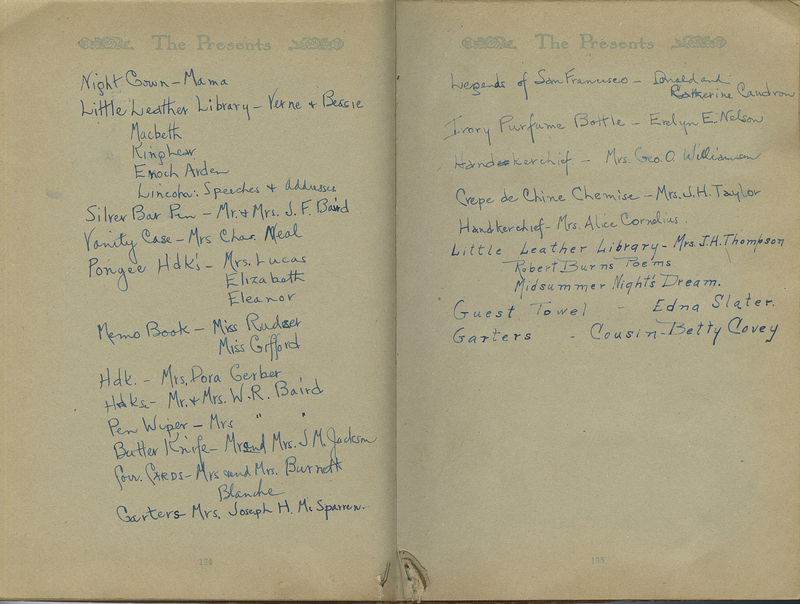 The Presents
Night Gown - Mama
Little Leather Library - Verne & Bessie
Macbeth
King Lear
Enoch Arden
Lincoln: Speeches & Addresses
Silver Bar Pen - Mr. & Mrs. J. F. Baird
Vanity Case - Mrs Chas. Neal
Pongee Hdk's - Mrs. Lucas
Elizabeth
Eleanor
Memo Book - Miss
Miss Gifford
Hdk. - Mrs. Dora Gerber
Hdks. - Mr. & Mrs. W. R. Baird
Pen Wiper - Mrs " "
Butter Knife - Mr and Mrs. J M. Jackson
Cards - Mrs and Mrs. Burnett
Blanche
Garters - Mrs. Joseph H. McSparren.
104
The Presents
Legends of San Francisco - Donald and
Katherine
Ivory Purfume Bottle - Evelyn E. Nelson
Handkerchief - Mrs. Geo. O. Williamson
Crepe de Chine Chemise - Mrs. J. H. Taylor
Handkerchief - Mrs. Alice Cornelius.
Little Leather Library - Mrs. J. H. Thompson
Robert Burns Poems
Midsummer Night's Dream.
Guest Towel - Edna Slater.
Garters - Cousin Betty Covey
105